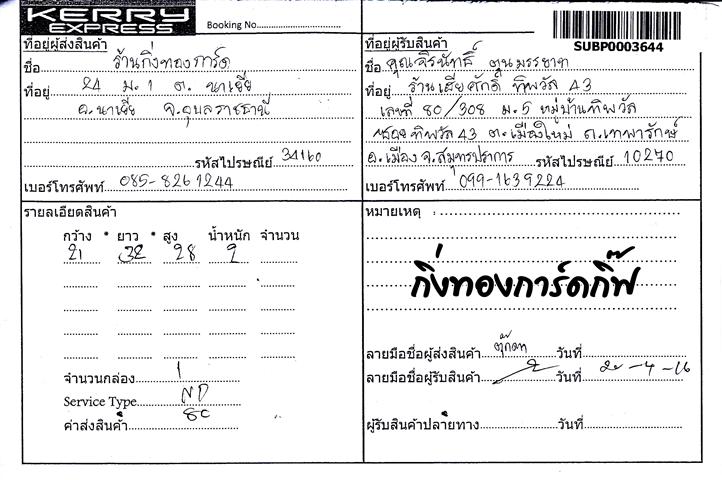 KERRY EXPRESS
Booking No.
SUBP0003644
ที่อยู่ผู้ส่งสินค้า
ชื่อ ร้านกิ่งทองการ์ด
ที่อยู่ 24 ม.1 ต. นาเยีย
อ.นาเยีย จ.อุบลราชธานี
รหัสไปรษณีย์ 34160
เบอร์โทรศัพท์ 085-8261244
ที่อยู่ผู้รับสินค้า
ชื่อ คุณจิรนันท์
ที่อยู่ ร้านเสี่ยศักดิ์ ทิพวัล 43
เลขที่ 80/308 ม.5 หมู่บ้านทิพวัล
ซอย ทิพวัล 43 ต.เมืองใหม่ ถ.เทพารักษ์
อ.เมือง จ.สมุทรปราการ รหัสไปรษณีย์ 10270
เบอร์โทรศัพท์ 099-1639224
รายละเอียดสินค้า
กว้าง * ยาว * สูง น้ำหนัก จำนวน
21 32 28 2
จำนวนกล่อง 1
Service Type ND
ค่าส่งสินค้า 80
หมายเหตุ :
กิ่งทองการ์ดกิ๊ฟ
ลายมือชื่อผู้ส่งสินค้า ตุ๊กตา วันที่
ลายมือชื่อผู้รับสินค้า วันที่ 20-4-16
ผู้รับสินค้าปลายทาง วันที่